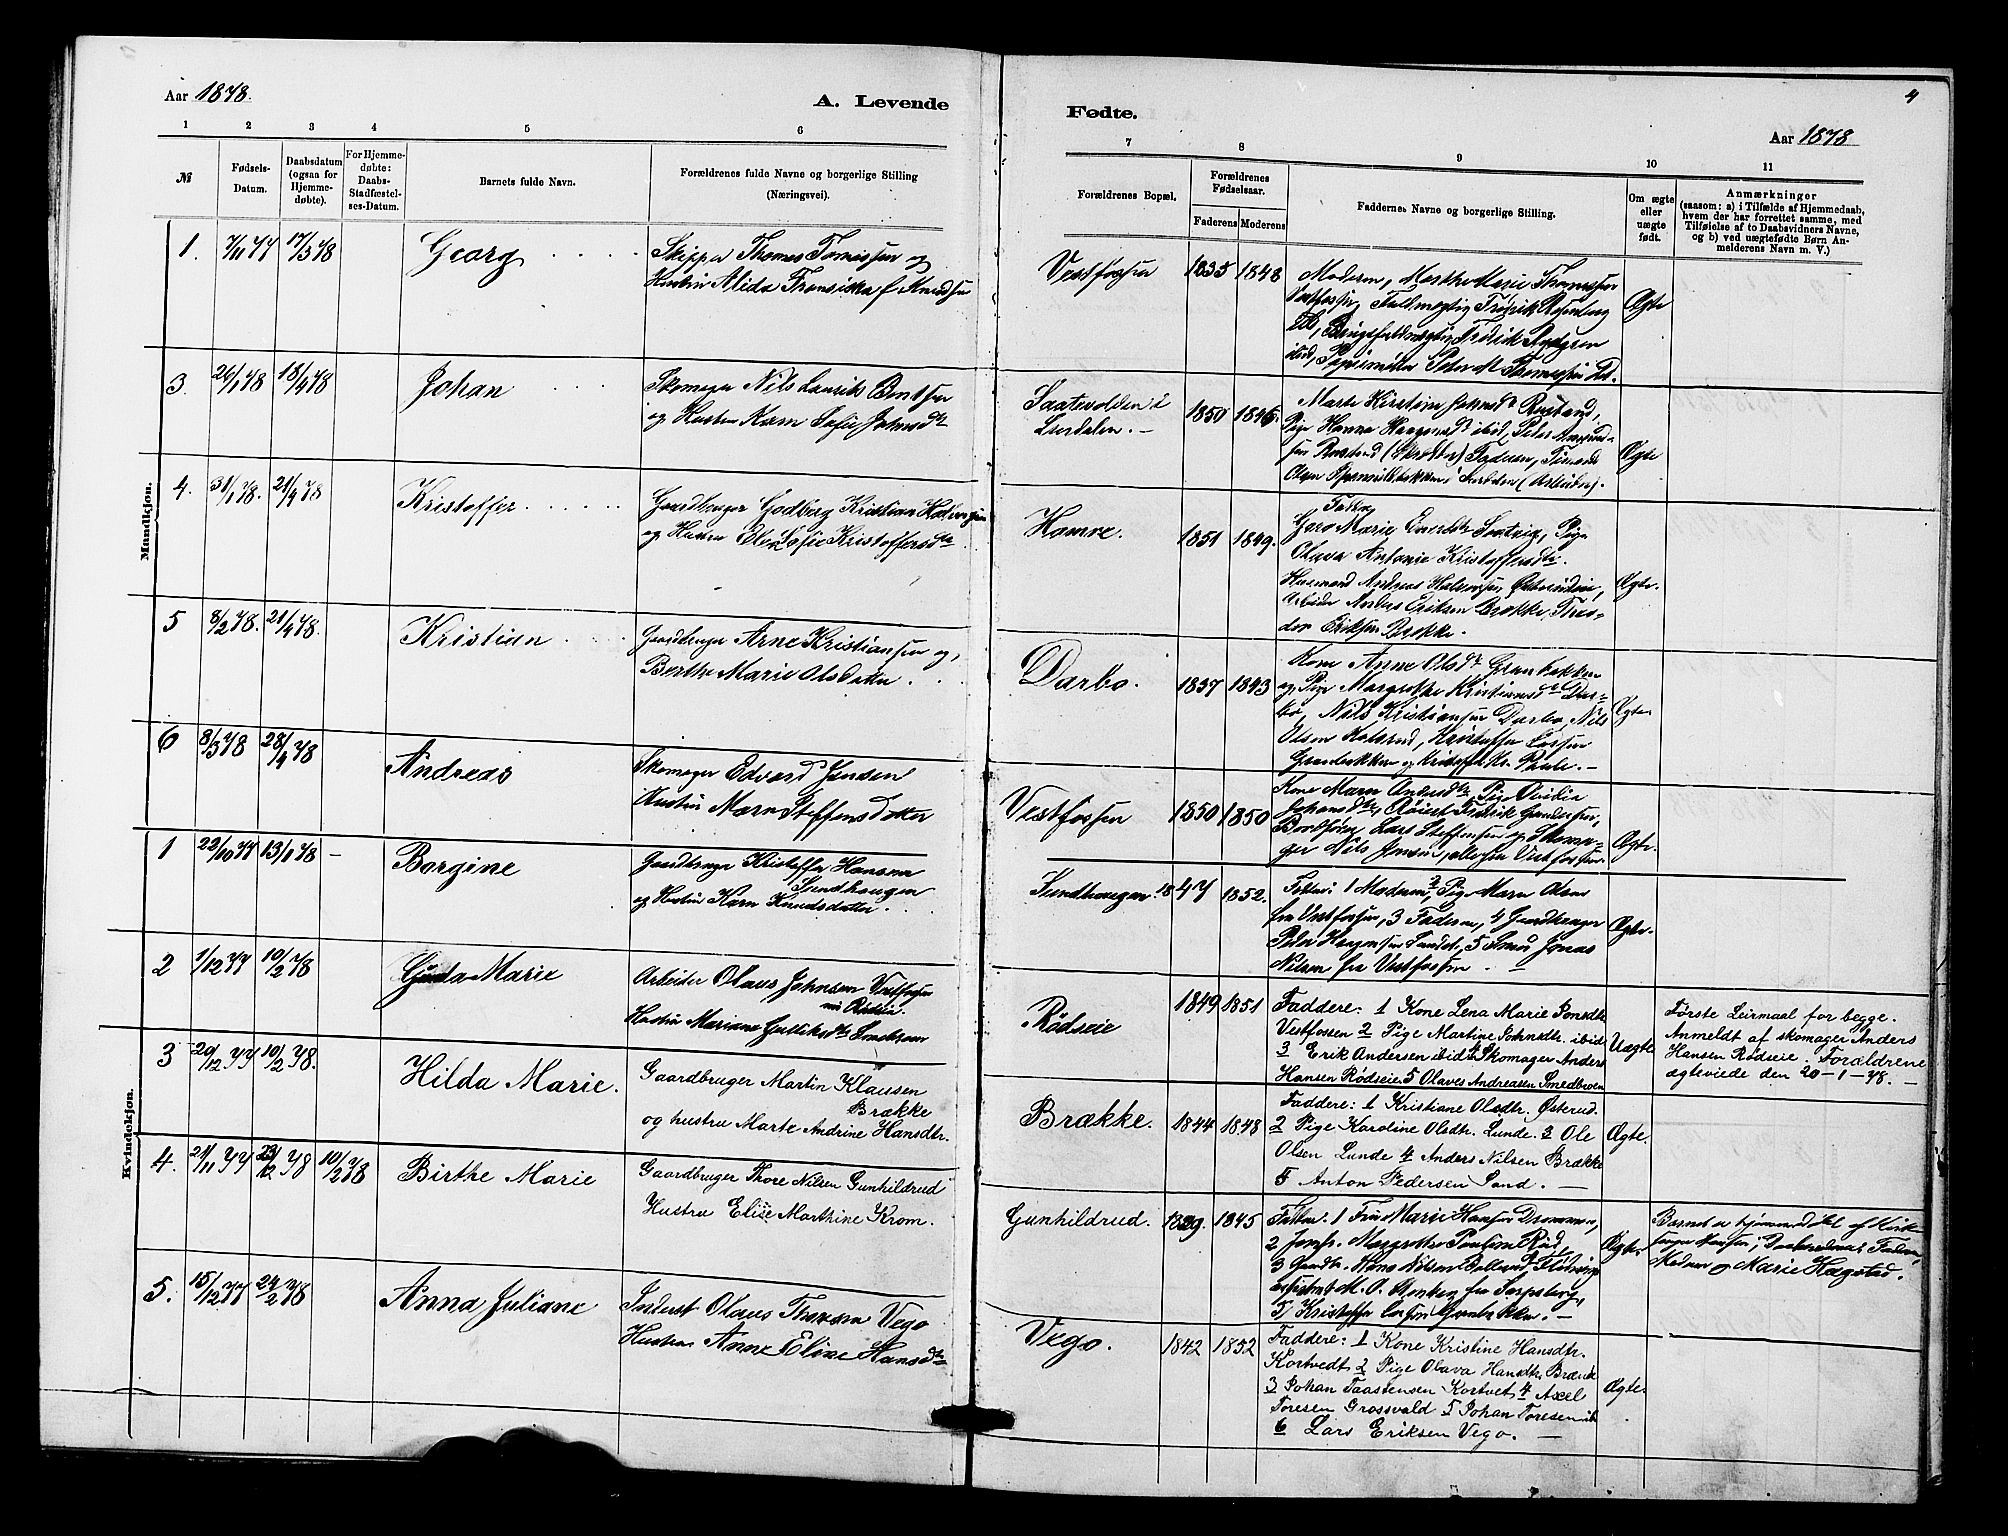 Aar 1878.
A. Levende
1 2 3 4 5 6
№
Fødsels-
Datum.
Daabsdatum
(ogsaa for
Hjemme-
døbte).
For Hjemme-
døbte:
Daabs-
Stadfæstel-
ses-Datum.
Barnets fulde Navn.
Forældrenes fulde Navne og borgerlige Stilling
(Næringsvei).
Mandkjøn.
1. 7/11 77 17/3 78 Georg
Skipper Thomas Tomissen og
Hustru Alida Fransiska f. Knudsen
3. 26/1 78 18/4 78 Johan
Skomager Nils Laurits Bentsen
og Hustru Karn Sofie Johnsdtr
4. 31/1 78. 21/4 78 Kristoffer
Gaardbruger Godberg Kristian
og Hustru Elen Sofie Kristoffersdtr.
5 8/2 78. 21/4 78. Kristian
Gaardbruger Arne Kristiansen og
Berthe Marie Olsdatter.
6 8/3 78 28/4 78 Andreas
Skomager Edvard Jensen
Hustru Maren Steffensdatter
Kvindekjøn.
1 22/10 77 13/1 78 - Borgine
Gaardbruger Kristoffer Hansen
Sundhaugen
og Hustru Karn Knudsdatter.
2 1/12 77 10/2 78 Gusta Marie
Arbeider Olaus Johnsen Vestfossen
Hustru Mariane Gulliksdtr
3 20/12 77 10/2 78. Hilda Marie.
Gaardbruger Martin Klausen
Brække
og hustru Marte Andrine Hansdtr.
4. 21/11 77 23/12 78 10/2 78 Birthe Marie
Gaardbruger Thore Nilsen Gunhildrud
Hustru Elise Marthine Krom.
5. 15/12 77 24/2 78 Anna Juliane
Inderst Olaus Thoresen Vego
Hustru Anne Eline Hansdtr
4
Fødte.
Aar 1878
7 8 9 10 11
Forældrenes Bopæl.
Forældrenes
Fødselsaar.
Faderens Moderens
Faddernes Navne og borgerlige Stilling.
Om ægte
eller
uægte
født.
Anmærkninger
(saasom: a) i Tilfælde af Hjemmedaab,
hvem der har forrettet samme, med
Tilføielse af to Daabsvidners Navne,
og b) ved uægtefødte Børn An-
melderens Navn m. V.)
Vestfossen 1835 1848
Moderen, Marthe Marie Thomessen
Vestfossen, Fuldmægtig Fredrik Rosenberg
ibid, Brugsfuldmægtig Fredrik
ibid, Papirmester Peter M. Thomessen ibid.
Ægte
Saatevolden i
1850 1846.
Marte Kirstine Johnsdtr Rustand,
Pige Hanna Haagensdtr ibid, Peter
Faderen,
Olsen (Arbeider).
Ægte
Hamre. 1851 1849.
Faddere
Goro Marie Pige
Olava Antonie Kristoffersdtr.
Husmand Andreas
Arbeider Anders Eriksen Brække,
Eriksen Brække.
Ægte.
Darbo. 1837 1843
Kone Anne Olsdtr Granbakken
og Pige Margrethe Kristiansdtr Dar-
bo, Nils Kristiansen Darbo, Nils
Olsen Kristoffer Larsen
Granbakken og
Ægte.
Vestfossen 1850 1850
Kone Maren Andersdtr, Pige Ovidia
Johansdtr, Fredrik Gundersen,
Lars Steffensen og Skoma-
ger Nils Jensen, alle fra Vestfossen.
Ægte.
Sundhaugen. 1847 1852.
Faddere: 1 Moderen, 2 Pige Maren Olsen
fra Vestfossen, 3 Faderen, 4 Gaardbruger
Peder Haagensen Sundet, 5 Smed Jonas
Nilsen fra Vestfossen. —
Ægte.
Rødseie 1849 1851
Faddere: 1 Kone Lena Marie Jonsdtr.
Vestfossen 2 Pige Martine Johnsdtr. ibid
3 Erik Andersen ibid 4 Skomager Anders
Hansen Rødseie 5 Olaves Andreasen Smedbroen
Uægte
Første Leirmaal for begge.
Anmeldt af skomager Anders
Hansen Rødseie. Forældrene
ægteviede den 20-1-78. —
Brække. 1844 1848
Faddere: 1 Kristiane Olsdtr. Østerud.
2 Pige Karoline Olsdtr. Lunde. 3 Ole
Olsen Lunde 4 Anders Nilsen Brække
5 Anton Pedersen Sand. —
Ægte.
Gunhildrud. 1829. 1845
Faddere: 1 Fru Marie Hansen Drammen,
2 Jomfr. Margrethe Pauline Rød,
3 Gaardbr. Hans Nilsen
M. O. fra Sarpsborg,
5/ Kristoffer Larsen Granbakken. —
Ægte.
Barnet er hjemmedøbt af Kirke-
sanger Hansen; Daabsvidner: Faderen,
Moderen og Marie Hagstad.
Vego. 1842 1852
Faddere: 1 Kone Kristine Hansdtr.
Kortvedt 2 Pige Olava Hansdtr. Brække
3 Johan Taastensen Kortvet 4 Axel
Toresen Grosvold 5 Johan Toresen ib
6 Lars Eriksen Vego. —
Ægte.